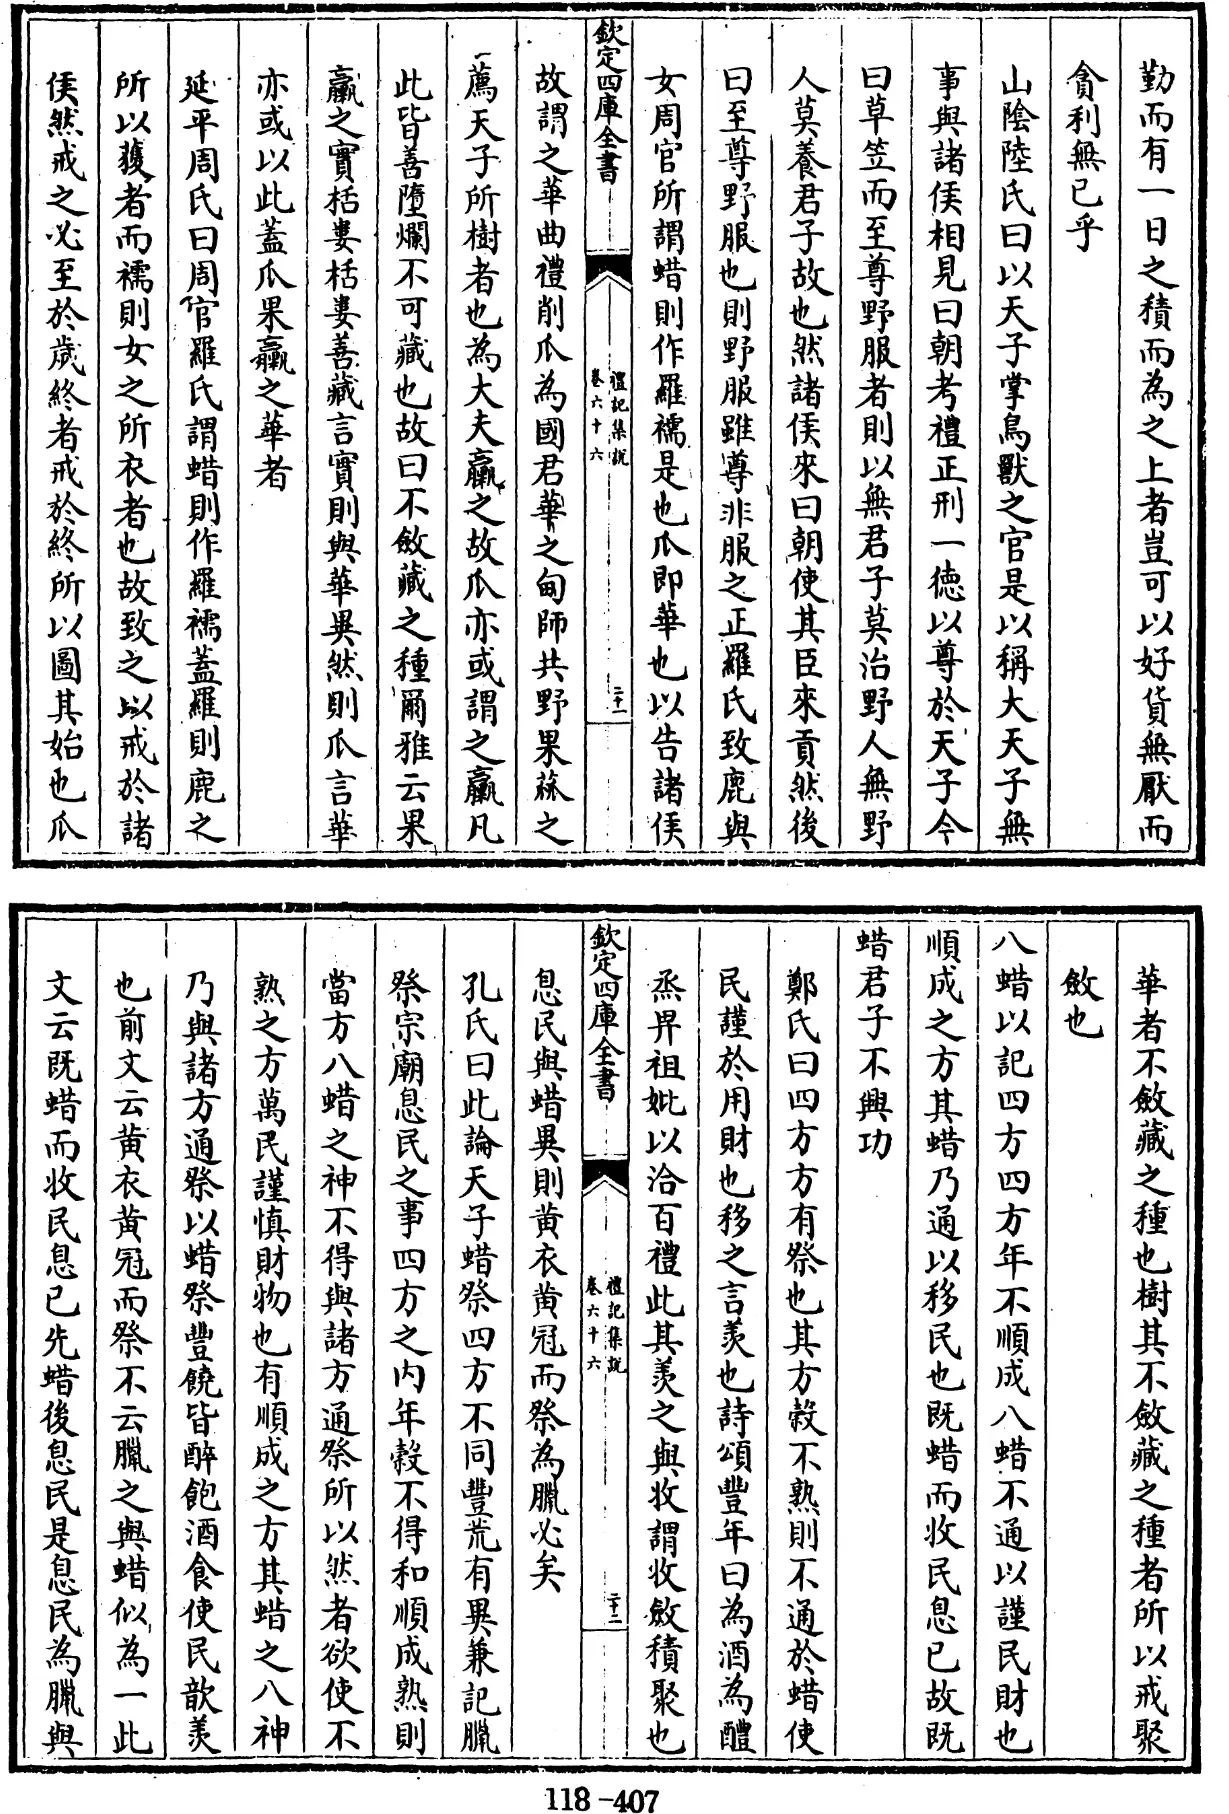 勤而有一日之積而為之上者豈可以好貨無厭而
貪利無已乎
山陰陸氏曰以天子掌鳥獸之官是以稱大天子無
事與諸侯相見曰朝考禮正刑一徳以尊於天子今
曰草笠而至尊野服者則以無君子莫治野人無野
人莫養君子故也然諸侯來曰朝使其臣來貢然後
曰至尊野服也則野服雖尊非服之正羅氏致鹿與
女周官所謂蜡則作羅襦是也瓜即華也以告諸侯
欽定四庫全書
禮記集說
卷六十六
二十一
故謂之華曲禮削瓜為國君華之甸師共野果蓏之
薦天子所樹者也為大夫蠃之故瓜亦或謂之蠃凡
此皆善墮爛不可藏也故曰不斂藏之種爾雅云果
蠃之實栝蔞栝蔞善藏言實則與華異然則瓜言華
亦或以此蓋瓜果蠃之華者
延平周氏曰周官羅氏謂蜡則作羅襦蓋羅則鹿之
所以獲者而襦則女之所衣者也故致之以戒於諸
侯然戒之必至於歲終者戒於終所以圖其始也瓜
華者不斂藏之種也樹其不斂藏之種者所以戒聚
斂也
八蜡以記四方四方年不順成八蜡不通以謹民財也
順成之方其蜡乃通以移民也既蜡而收民息已故既
蜡君子不興功
鄭氏曰四方方有祭也其方穀不熟則不通於蜡使
民謹於用財也移之言羨也詩頌豐年曰為酒為醴
烝畀祖妣以洽百禮此其羨之與收謂收斂積聚也
欽定四庫全書
禮記集說
卷六十六
二十二
息民與蜡異則黄衣黄冠而祭為臘必矣
孔氏曰此論天子蜡祭四方不同豐荒有異兼記臘
祭宗廟息民之事四方之内年穀不得和順成熟則
當方八蜡之神不得與諸方通祭所以然者欲使不
熟之方萬民謹慎財物也有順成之方其蜡之八神
乃與諸方通祭以蜡祭豐饒皆醉飽酒食使民歆羨
也前文云黄衣黄冠而祭不云臘之與蜡似為一此
文云既蜡而收民息已先蜡後息民是息民為臘與
118-407